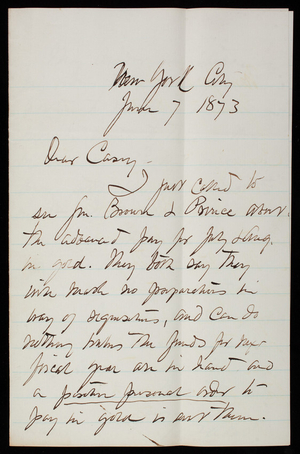 New York City
June 7 1873
Dear Casey -
I just called to
see Gen. Brown & Prince about
the advanced pay for July & Aug.
in gold. They both say they
will make no preparations in
way of requisitions, and can do
nothing unless the funds for new
fiscal year are in hand and
a positive personal order to
pay in gold is sent them.